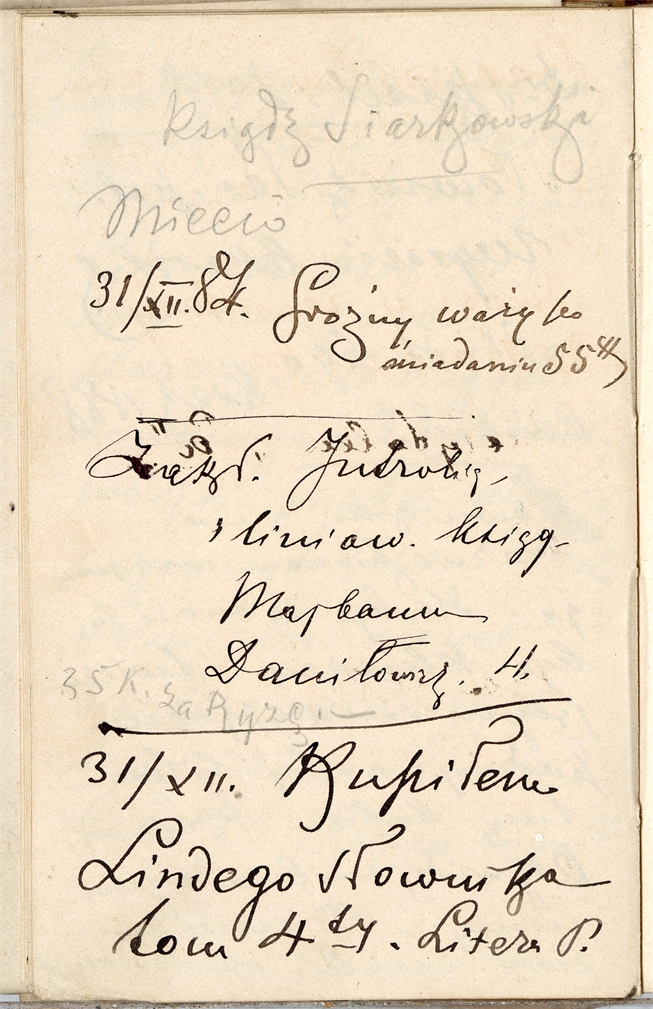 Ksiądz Siarkowski
Miecio
31/XII.84. Groźny waży po
śniadaniu 55 ℔
Zakł. Introlig.
i liniow. Ksiąg
Majbaum
Daniłowicz. 4.
35 K. za Ryzę.—
31/XII. Kupiłem
Lindego Słownika
tom 4ty. Litera P.